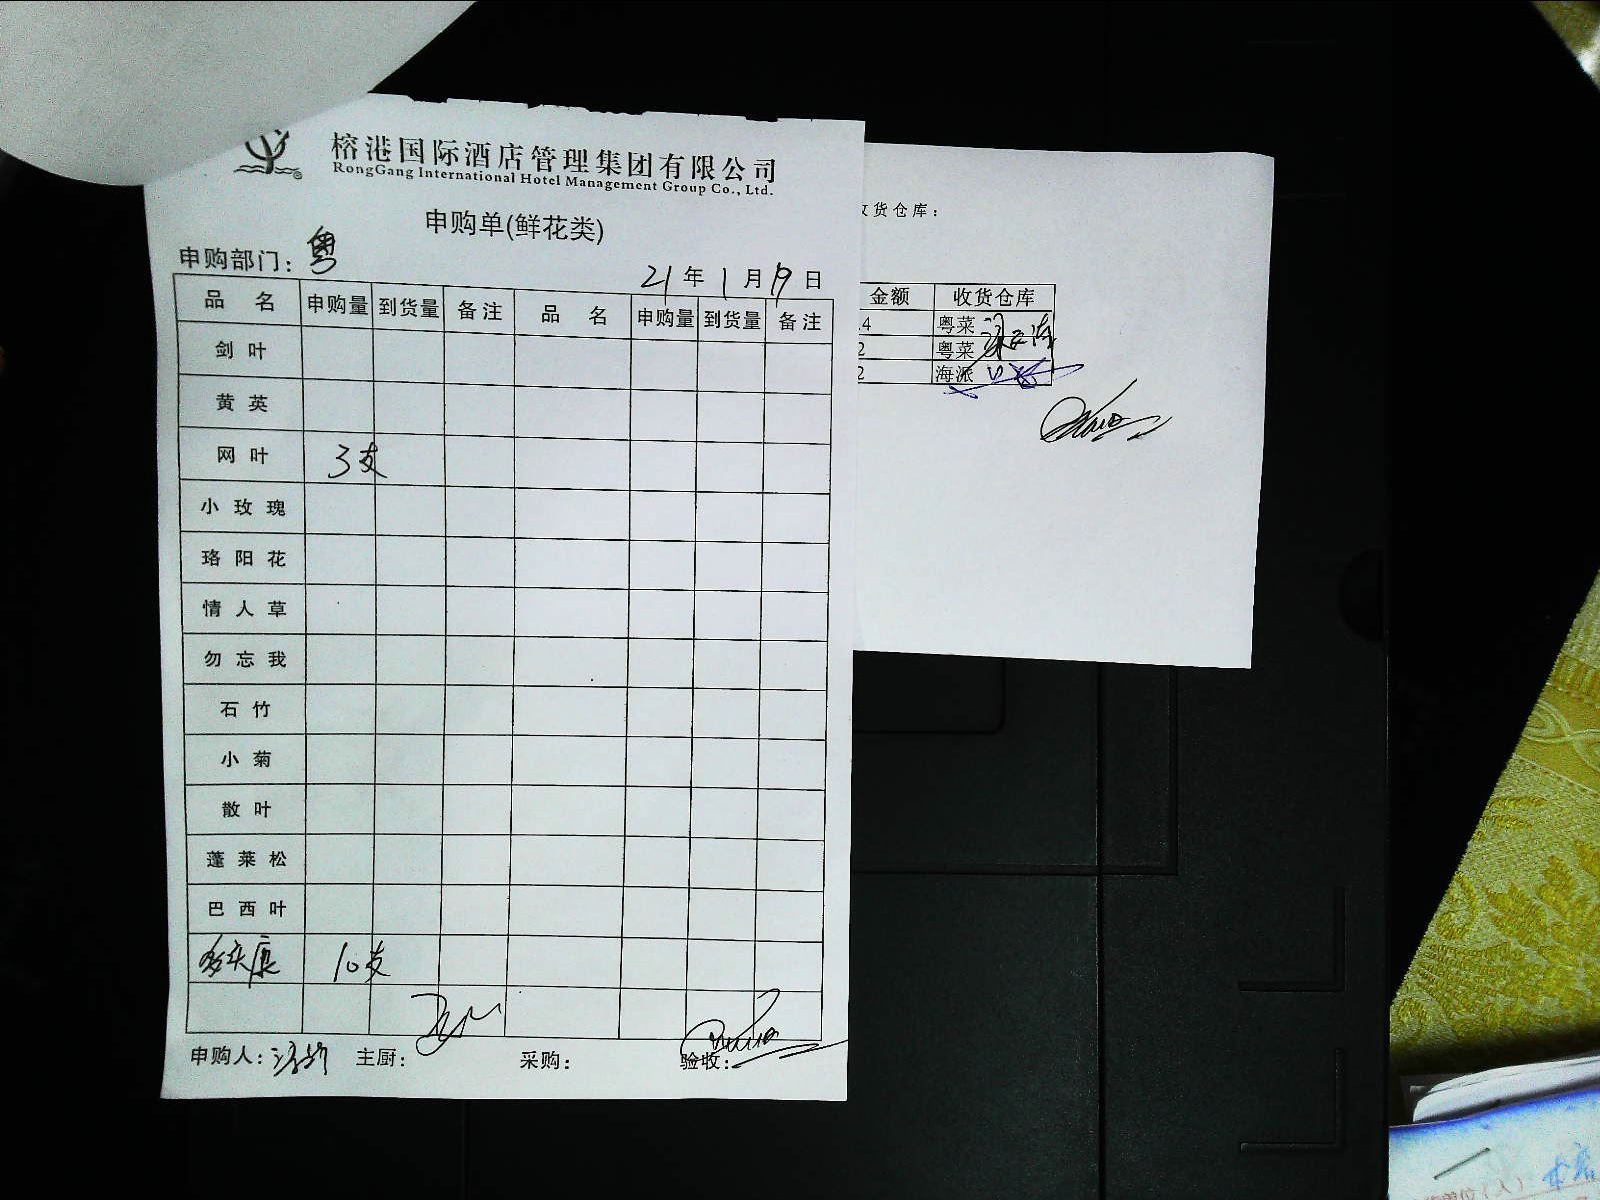 榕港国际酒店管理集团有限公司
RongGang International Hotel Management Group Co., Ltd.
申购单(鲜花类)
申购部门: 粤
21 年 1 月 19 日
品 名 申购量 到货量 备注 品 名 申购量 到货量 备注
剑 叶
黄 英
网 叶 3支
小 玫 瑰
珞 阳 花
情 人 草
勿 忘 我
石 竹
小 菊
散 叶
蓬 莱 松
巴 西 叶
多头康 10支
申购人: 主厨: 采购: 验收:
收货仓库:
金额 收货仓库
.4 粤菜
2 粤菜
2 海派